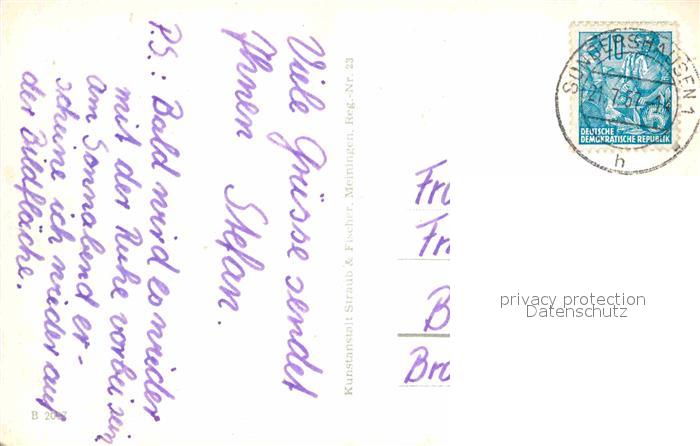 Viele Grüsse sendet
Ihnen Stefan.
P.S.: Bald wird es wieder
mit der Ruhe vorbei sein
am Sonnabend er-
scheine ich wieder auf
der Bildfläche.
B 20
Kunstanstalt Straub & Fischer, Meiningen, Reg.-Nr. 23
10
DEUTSCHE
DEMOKRATISCHE REPUBLIK
SONDERSHAUSEN 1
h
Fr
Fr
B
Bra
privacy protection
Datenschutz